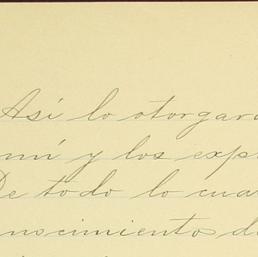 Así lo otorgaro
mí y los expr
De todo lo cua
nocimientos de